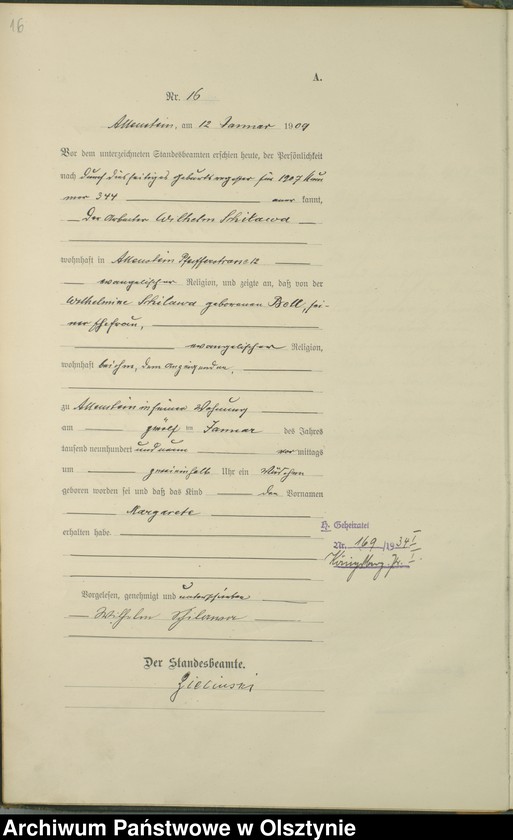 16
A.
Nr. 16
Allenstein, am 12 Januar 1909
Vor dem unterzeichneten Standesbeamten erschien heute, der Persönlichkeit
nach durch diesseitiges Geburtsregister für 1907 Num
mer 344 aner kannt,
Der Arbeiter Wilhelm Schilawa
wohnhaft in Allenstein Pfeifferstrasse 12
evangelischer Religion, und zeigte an, daß von der
Wilhelmine Schilawa geborenen Boll, sei-
ner Ehefrau,
evangelischer Religion,
wohnhaft bei ihm, dem Anzeigenden,
zu Allenstein in seiner Wohnung
am zwölf ten Januar des Jahres
tausend neunhundert und neun vor mittags
um zweieinhalb Uhr ein Mädchen
geboren worden sei und daß das Kind den Vornamen
Margarete
erhalten habe.
H. Geheiratet
Nr. 169 /1934
Königsberg Pr. I
Vorgelesen, genehmigt und unterschrieben
Wilhelm Schilawa
Der Standesbeamte.
Zielinski
Archiwum Państwowe w Olsztynie